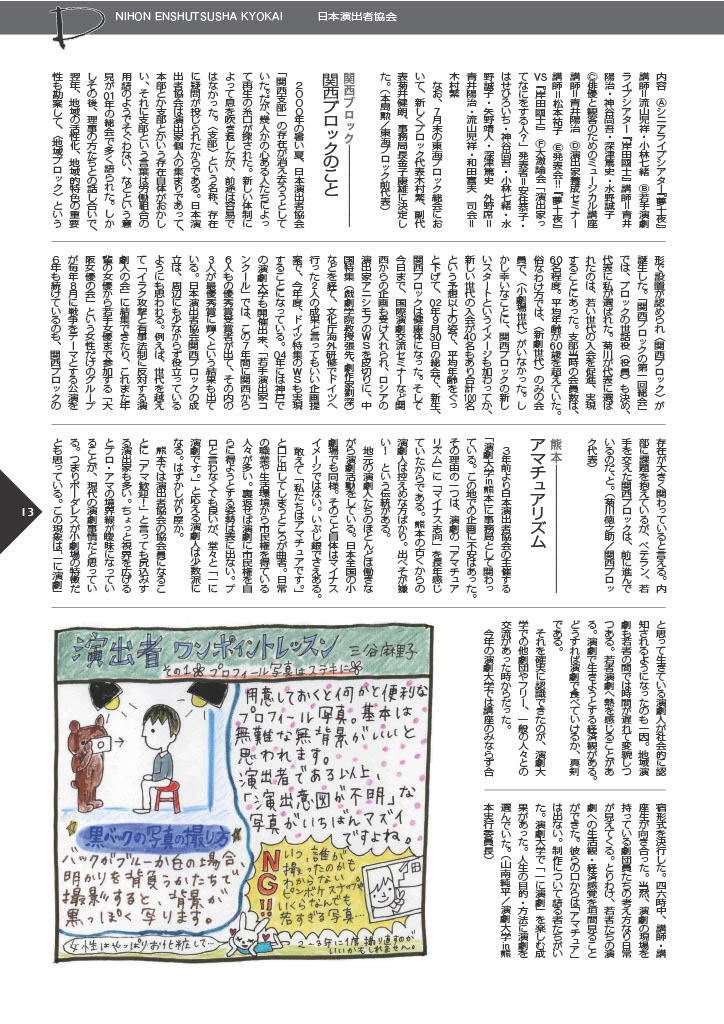 NIHON ENSHUTSUSHA KYOKAI　日本演出者協会
内容　Ⓐシニアライブシアター『夢十夜』
講師＝流山児祥・小林七緒　Ⓑ若手演劇
ライブシアター『岸田國士』講師＝青井
陽治・神谷尚吾・深津篤史・水野誠子
Ⓒ俳優と観客のためのミュージカル講座
講師＝青井陽治　Ⓓ演出家養成セミナー
講師＝松本祐子　Ⓔ発表会!!『夢十夜』
VS『岸田國士』　Ⓕ大激論会「演出家っ
てなにをする人？」発表者＝安住恭子・
はせひろいち・神谷尚吾・小林七緒・水
野誠子・矢野靖人・深津篤史　外野席＝
青井陽治・流山児祥・和田喜夫　司会＝
木村繁
　なお、7月末の東海ブロック総会にお
いて、新しくブロック代表木村繁、副代
表菊井健朗、事務局長金子康雄に決定し
た。（本島勲／東海ブロック前代表）
関西ブロック
関西ブロックのこと
　2000年の暑い夏、日本演出者協会
「関西支部」の存在が消え去ろうとして
いた。だが、幾人かの心ある人たちによっ
て再生の糸口が探された。新しい体制に
よって息を吹き返したが、前途は容易で
はなかった。〈支部〉という名称、存在
に疑問が投じられたからである。日本演
出者協会は演出家個人の集まりであって、
本部とか支部とかいう存在自体がおかし
い、それに支部という言葉は労働組合の
用語のようでそぐわない、などという意
見が01年の総会で多く語られた。しか
しその後、理事の方たちとの話し合いで、
翌年、地域の活性化、地域的特色の重要
性も勘案して、〈地域ブロック〉という
形で設置が認められ〈関西ブロック〉が
誕生した。「関西ブロックの第一回総会」
では、ブロックの世話役（役員）も決め、
代表に私が選ばれた。菊川が代表に選ば
れたのは、若い世代の入会を促進、実現
することにあった。支部当時の会員数は、
60名程度。平均年齢が60歳を超えていた。
俗なわけ方では、〈新劇世代〉のみの会
員で、〈小劇場世代〉がいなかった。し
かし幸いなことに、関西ブロックの新し
いスタートというイメージも加わってか、
新しい世代の入会が40名もあり合計100名
という予想以上の姿で、平均年齢をぐっ
と下げて、02年9月30日の総会で、新生、
関西ブロックは健康体になった。そして
今日まで、国際演劇交流セミナーなど関
西からの企画も受け入れられ、ロシアの
演出家アニシモフのWSを皮切りに、中
国特集（戯劇学院教授張先、劇作家劉深）
などを経て、文化庁海外研修でドイツへ
行った2人の成果と言ってもいい企画提
案で、今年度、ドイツ特集のWSも実現
することになっている。04年には神戸で
の演劇大学も開催出来、「若手演出家コ
ンクール」では、この7年間に関西から
6人もの優秀賞受賞者が出て、その内の
3人が最優秀賞に輝くという結果も出て
いる。日本演出者協会関西ブロックの成
立は、周辺にも少なからず役立っている
ようにも思われる。例えば、世代を越え
て「イラク攻撃と有事法制に反対する演
劇人の会」に結集できたり、これまた年
輩の女優から若手女優まで参加する「大
阪女優の会」という女性だけのグループ
が毎年8月に戦争をテーマとする公演を
6年も続けているのも、関西ブロックの
存在が大きく関わっていると言える。内
部に課題を抱えているが、ベテラン、若
手を交えた関西ブロックは、前に進んで
いるのだぞ。（菊川徳之助／関西ブロッ
ク代表）
熊本
アマチュアリズム
　3年前より日本演出者協会の主催する
「演劇大学in熊本」に事務局として関わっ
ている。この地での企画に不安はあった。
その理由の一つは、演劇の「アマチュア
リズム」に「マイナス志向」を長年感じ
ていたからである。熊本の古くからの
演劇人は控えめな方ばかり。出べそが嫌
い！　という伝統がある。
　地元の演劇人たちのほとんどは働きな
がら演劇活動をしている。日本全国の小
劇場でも同様。そのこと自体はマイナス
イメージではない。いぶし銀でさえある。
　敢えて「私たちはアマチュアです。」
と口に出してしまうところが曲者。日常
の職業や生活環境から市民権を得ている
人々が多い。裏返せば演劇に市民権を自
らに得ようとする姿勢は表に出ない。プ
ロと言わなくても良いが、堂々と「一に
演劇です。」と応える演劇人は少数派に
なる。はずかしがり屋か。
　熊本では演出者協会の協会員になるこ
とに「アマ歓迎！」と言っても尻込みす
る演出者も多い。ちょっと視界を広げる
とプロ・アマの境界線が曖昧になってい
ることが、現代の演劇事情だと思ってい
る。つまりボーダレスが小劇場の特徴だ
とも思っている。この現象は「一に演劇」
と思って生きている演劇人が社会的に認
知されるようになったのも一因。地域演
劇も若者の間では時間が遅れて変貌しつ
つある。若者演劇へ熱を感じることがあ
る。演劇で生きようとする経済観がある。
どうすれば演劇で食べていけるか、真剣
である。
　それを確実に認識できたのが、演劇大
学での他劇団やフリー、一般の人々との
交流があった時からだった。
　今年の演劇大学では講座のみならず合
宿形式を決行した。四六時中、講師・講
座生が向き合った。当然、演劇の現場を
持っている劇団員たちの考え方なり日常
が見えてくる。とりわけ、若者たちの演
劇への生活観・経済感覚を垣間見ること
ができた。彼らの口からは「アマチュア」
は出ない。制作について語る者たちがい
た。演劇大学で「一に演劇」を楽しむ成
果があった。人生の目的・方法に演劇を
選んでいた。（山南純平／演劇大学in熊
本実行委員長）
演出者 ワンポイントレッスン　三谷麻里子
その1 プロフィール写真はステキに
用意しておくと何かと便利な
プロフィール写真。基本は
無難な無背景がいいと
思われます。
演出者である以上、
「演出意図が不明」な
写真がいちばんマズイ
ですよね。
黒バックの写真の撮り方
バックがブルーか白の場合、
明かりを背負うかたちで
撮影すると、背景が
黒っぽく写ります。
NG!!
いつ、誰が
撮ったのかも
わからない
ピンボケスナップや
いくらなんでも
若すぎる写真…
女性はやっぱりお化粧して〜
2〜3年に1度撮り直すのが
いいかもしれません。
13